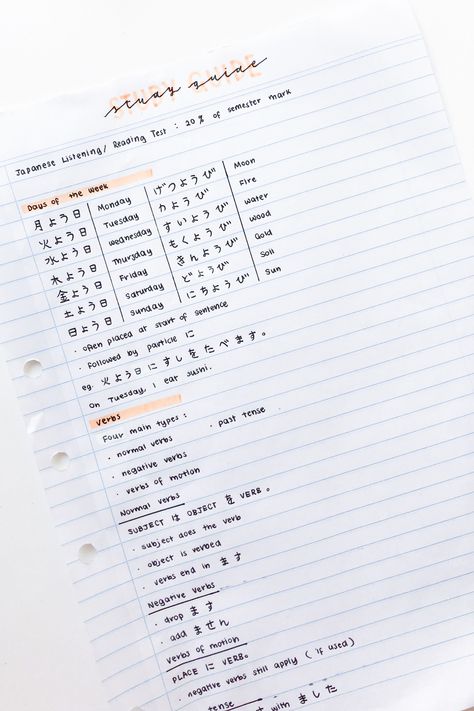 STUDY GUIDE
study guide
Japanese Listening/ Reading Test : 20% of semester mark
Days of the week
月よう日 Monday げつようび Moon
火よう日 Tuesday かようび Fire
水よう日 Wednesday すいようび water
木よう日 Thursday もくようび wood
金よう日 Friday きんようび Gold
土よう日 Saturday どようび Soil
日よう日 Sunday にちようび Sun
· often placed at start of sentence
· Followed by particle に
eg. 火よう日にすしをたべます。
On Tuesday, I eat sushi.
Verbs
Four main types :
· normal verbs · past tense
· negative verbs
· verbs of motion
Normal verbs
SUBJECT は OBJECT を VERB。
· subject does the verb
· object is verbed
· verbs end in ます
Negative verbs
· drop ます
· add ません
Verbs of motion
PLACE に VERB。
· negative verbs still apply ( if used)
tense
with ました